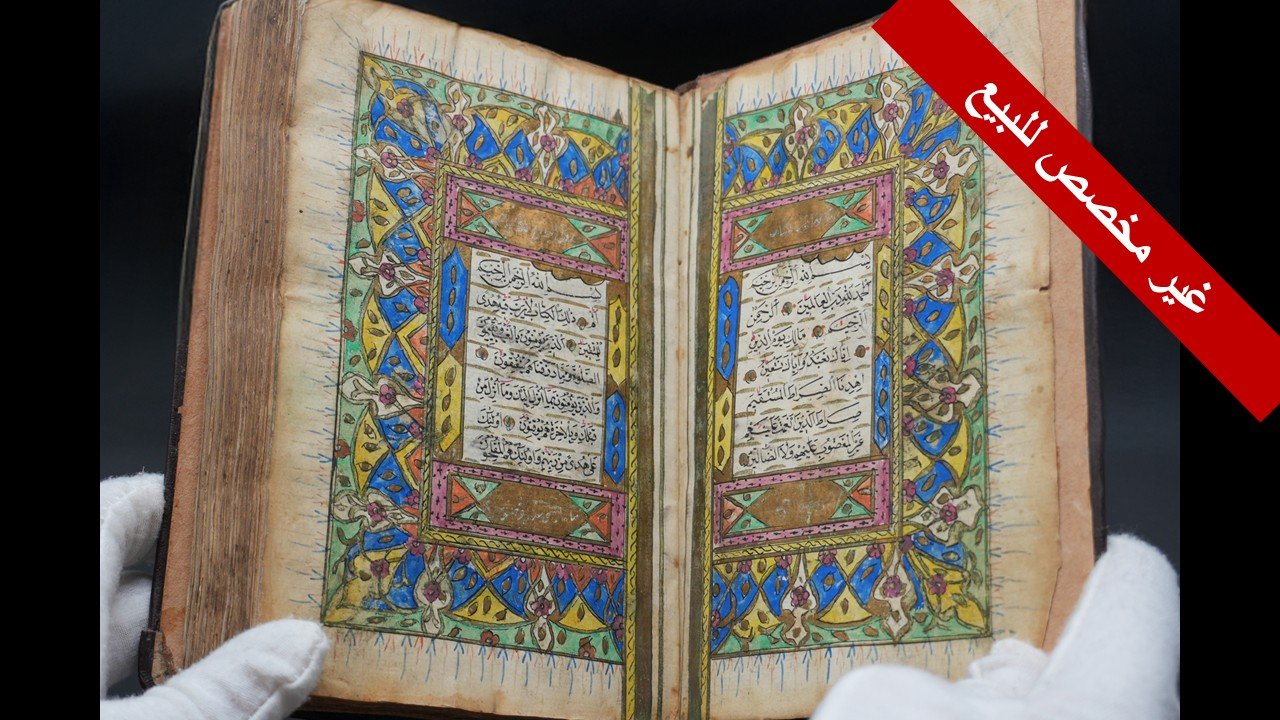 غير مخصص للبيع
بسم الله الرحمن الرحيم
الحمد لله رب العالمين الرحمن
الرحيم مالك يوم الدين
اياك نعبد واياك نستعين
اهدنا الصراط المستقيم
صراط الذين انعمت عليهم
غير المغضوب عليهم ولا الضالين
بسم الله الرحمن الرحيم
الم ذلك الكتاب لا ريب فيه هدى
للمتقين الذين يؤمنون بالغيب ويقيمون
الصلوة ومما رزقناهم ينفقون
والذين يؤمنون بما انزل اليك وما انزل من
قبلك وبالاخرة هم يوقنون اولئك
على هدى من ربهم واولئك هم المفلحون